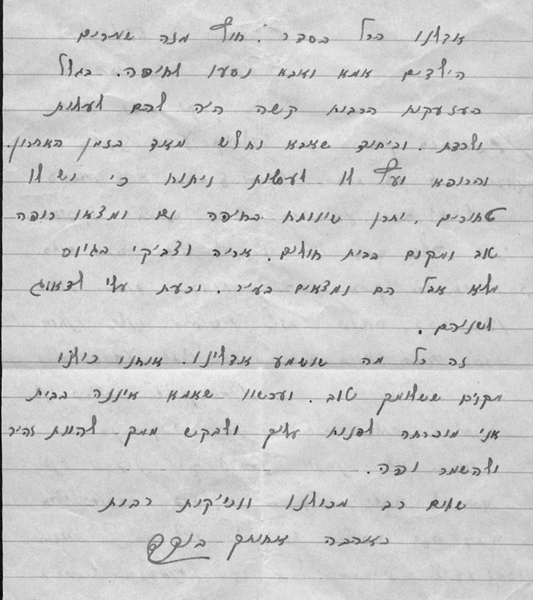 אצלנו הכל בסדר. חוץ מזה שמרים
הילדים אמא ואבא נסעו לחיפה. בגלל
האזעקות הרבות קשה היה להם לעלות
ולרדת. ובייחוד שאבא נחלש מאוד בזמן האחרון.
והרופא יעץ לו לעשות ניתוח כי יש לו
טחורים. יתכן שינותח בחיפה שם ומצאו רופא
טוב ומקום בבית חולים. אריה וצביקי בגיוס
מלא אבל הם נמצאים בעיר. וכעת עלי לדאוג
לשניהם.
זה כל מה שנשמע אצלינו. אנחנו כולנו
מקוים ששלומך טוב. ועכשיו שאמא איננה בבית
אני מוכרחה לפנות עליך ולבקש ממך להיות זהיר
ולהשמר יפה.
שלום רב מכולנו ונשיקות רבות
באהבה אחותך